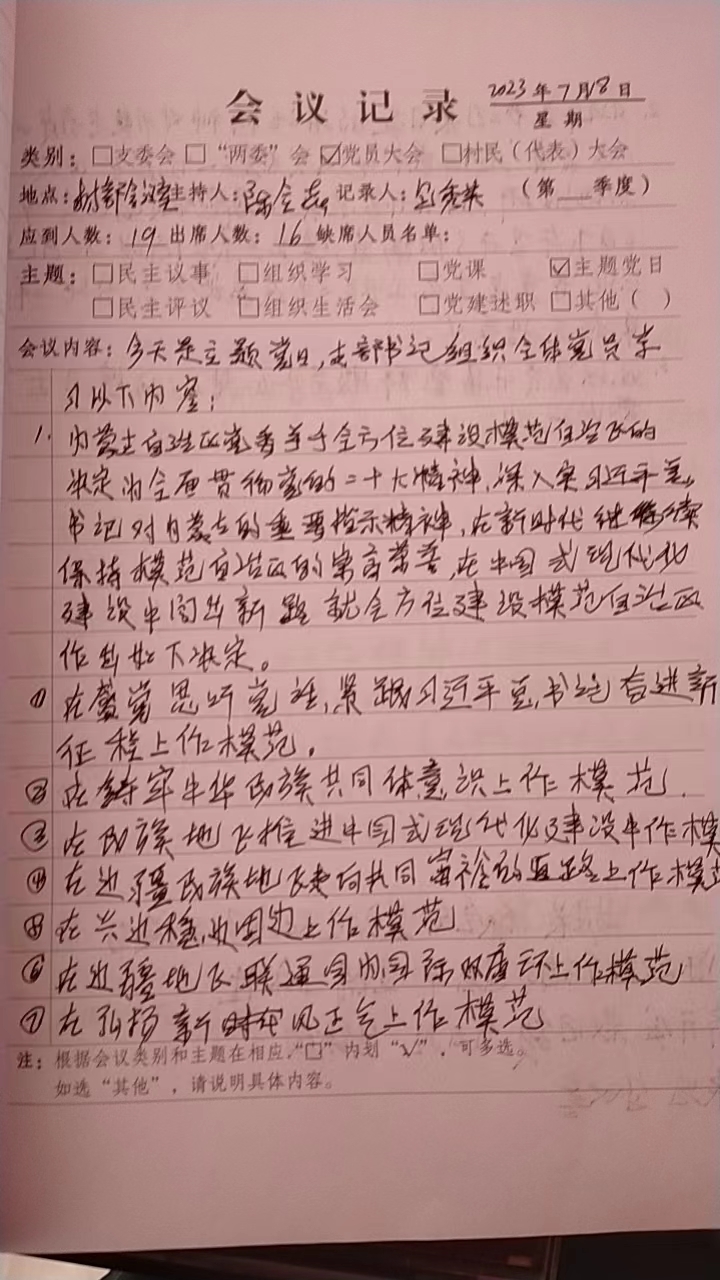 会议记录 2023年7月18日
星期
类别：□支委会 □“两委”会 ☑党员大会 □村民（代表）大会
地点：村部会议室 主持人：陈 记录人： （第 季度）
应到人数：19 出席人数：16 缺席人员名单：
主题：□民主议事 □组织学习 □党课 ☑主题党日
□民主评议 □组织生活会 □党建述职 □其他（ ）
会议内容：今天是主题党日，支部书记组织全体党员学
习以下内容：
1. 内蒙古自治区党委关于全方位建设模范自治区的
决定为全面贯彻党的二十大精神，深入实习近平总
书记对内蒙古的重要指示精神，在新时代继续
保持模范自治区的崇高荣誉，在中国式现代化
建设中闯出新路就全方位建设模范自治区
作出如下决定。
① 在感党恩听党话，紧跟习近平总书记奋进新
征程上作模范。
② 在铸牢中华民族共同体意识上作模范.
③ 在民族地区推进中国式现代化建设中作模
④ 在边疆民族地区走向共同富裕的道路上作模范
⑤ 在兴边稳边固边上作模范
⑥ 在边疆地区联通国内国际双循环上作模范
⑦ 在弘扬新时代风正气上作模范
注：根据会议类别和主题在相应“□”内划“√”，可多选。
如选“其他”，请说明具体内容。